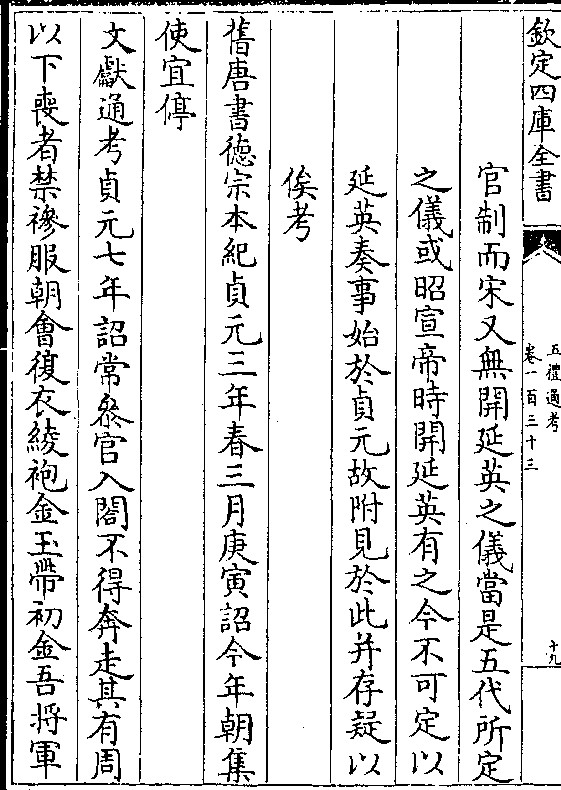 欽定四庫全書
五禮通考
卷一百三十三
十九
官制而宋又無開延英之儀當是五代所定
之儀或昭宣帝時開延英有之今不可定以
延英奏事始於貞元故附見於此并存疑以
俟考
舊唐書德宗本紀貞元三年春三月庚寅詔今年朝集
使宜停
文獻通考貞元七年詔常叅官入閤不得奔走其有周
以下喪者禁襂服朝會復衣綾袍金玉帶初金吾將軍